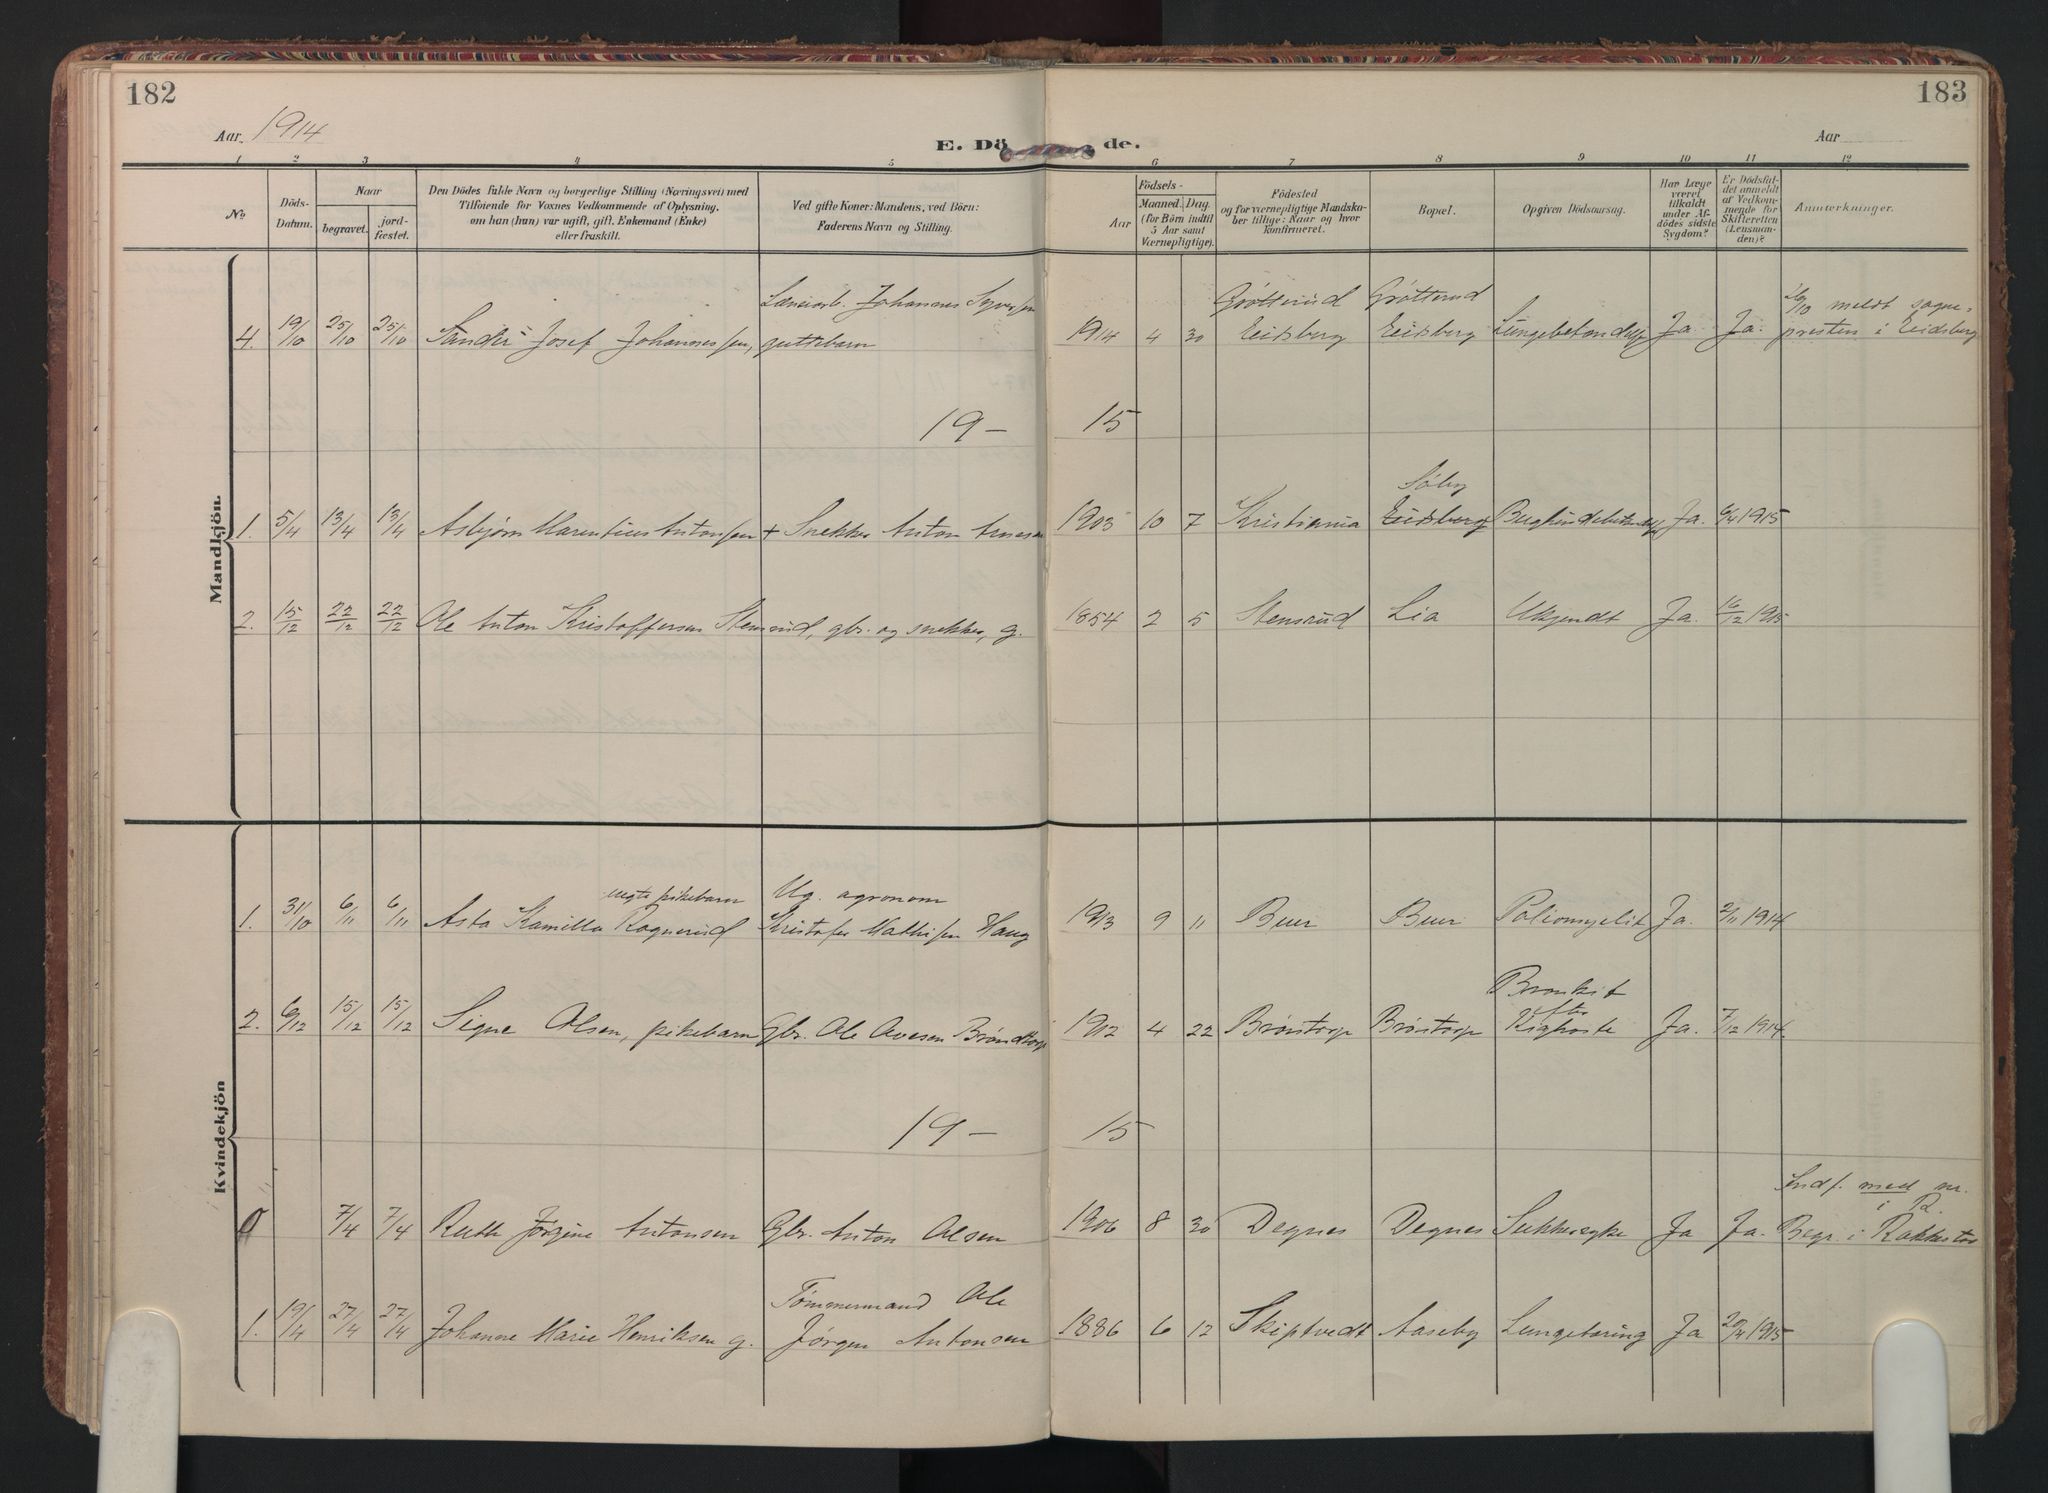 182
183
Aar 1914
E. Dö de.
Aar
1 2 3 4 5 6 7 8 9 10 11 12
No
Döds-
Datum.
Naar
begravet.
jord-
fæstet.
Den Dödes fulde Navn og borgerlige Stilling (Næringsvei) med
Tilföiende for Voxnes Vedkommende af Oplysning,
om han (hun) var ugift, gift, Enkemand (Enke)
eller fraskilt.
Ved gifte Koner: Mandens, ved Börn:
Faderens Navn og Stilling.
Födsels-
Aar
Maaned. Dag.
(for Börn indtil
5 Aar samt
Værnepligtige).
Födested
og for værnepligtige Mandska-
ber tillige: Naar og hvor
konfirmeret.
Bopæl.
Opgiven Dödsaarsag.
Har Læge
været
tilkaldt
under Af-
dödes sidste
Sygdom?
Er Dödsfal-
det anmeldt
af Vedkom-
mende for
Skifteretten
(Lensman-
den)?
Anmærkninger.
Mandkjön.
Johannes Syversen Grötterud Grötterud 20/10 meldt sogne-
4. 19/10 25/10 25/10 Josef Johannessen, guttebarn 1914 4 30 Eidsberg Eidsberg Ja Ja. presten i Eidsberg
19 - 15
Söby
1. 5/4 13/4 13/4 Asbjørn Antonsen + Snekker Anton Arnesen 1903 10 7 Kristiania Eidsberg Ja. 6/4 1915
2. 15/12 22/12 22/12 Ole Anton Kristoffersen Stensrud, gbr. og snekker, g. 1854 2 5 Stensrud Lia Ukjendt Ja. 16/12 1915
Kvindekjön
uegte pikebarn Ug. agronom
1. 31/10 6/11 6/11 Asta Kamilla Ragnerud Kristofer Mathisen Haug 1913 9 11 Buer Buer Poliomyelit Ja. 2/11 1914
Bronkit
efter
2. 6/12 15/12 15/12 Signe Olsen, pikebarn Gbr. Ole Brøndtorp 1912 4 22 Brøntorp Brøntorp Kighoste Ja. 7/12 1914.
19 - 15
Indf. med nr.
i R.
0 7/4 7/4 Ruth Jørgine Antonsen Gbr. Anton Olsen 1906 8 30 Degnes Degnes Sukkersyke Ja Ja. Begr. i Rakkestad
Tømmermand Ole
1. 19/4 27/4 27/4 Johanne Marie Henriksen g. Jørgen Antonsen 1886 6 12 Skiptvedt Aaseby Lungetæring Ja 20/4 1915